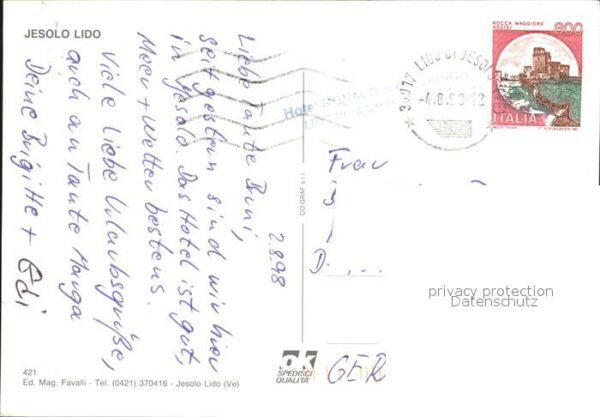 JESOLO LIDO
Liebe Tante Buni,
seit gestern sind wir hier
in Jesolo. Das Hotel ist gut,
Meer + Wetter bestens.
Viele liebe Urlaubsgrüße,
auch an Tante Marga
Deine Brigitte + Edi
2.8.98
421
Ed. Mag. Favalli - Tel. (0421) 370416 - Jesolo Lido (Ve)
CO GRAF s.r.l.
ok
SPEDISCI
QUALITÀ
ROCCA MAGGIORE
ASSISI
800
ITALIA
30017 LIDO DI JESOLO
-4.8.98-12
Hotel
Frau
D.
GER
privacy protection
Datenschutz